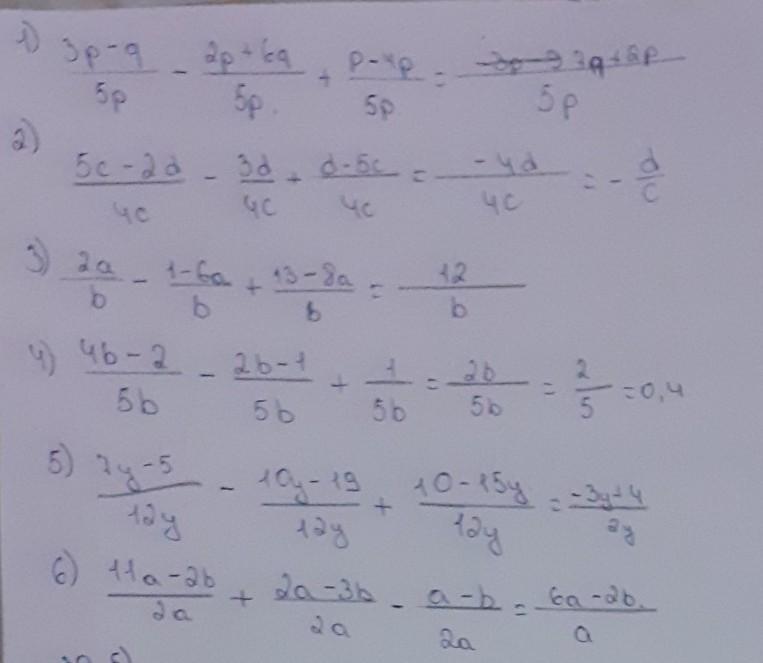 1) (3p-q)/5p - (2p+6q)/5p + (p-4p)/5p = 7q+2p/5p
2) (5c-2d)/4c - 3d/4c + (d-5c)/4c = -4d/4c = - d/c
3) 2a/b - (1-6a)/b + (13-8a)/b = 12/b
4) (4b-2)/5b - (2b-1)/5b + 1/5b = 2b/5b = 2/5 = 0,4
5) (7y-5)/12y - (10y-19)/12y + (10-15y)/12y = (-3y+4)/2y
6) (11a-2b)/2a + (2a-3b)/2a - (a-b)/2a = (6a-2b)/a